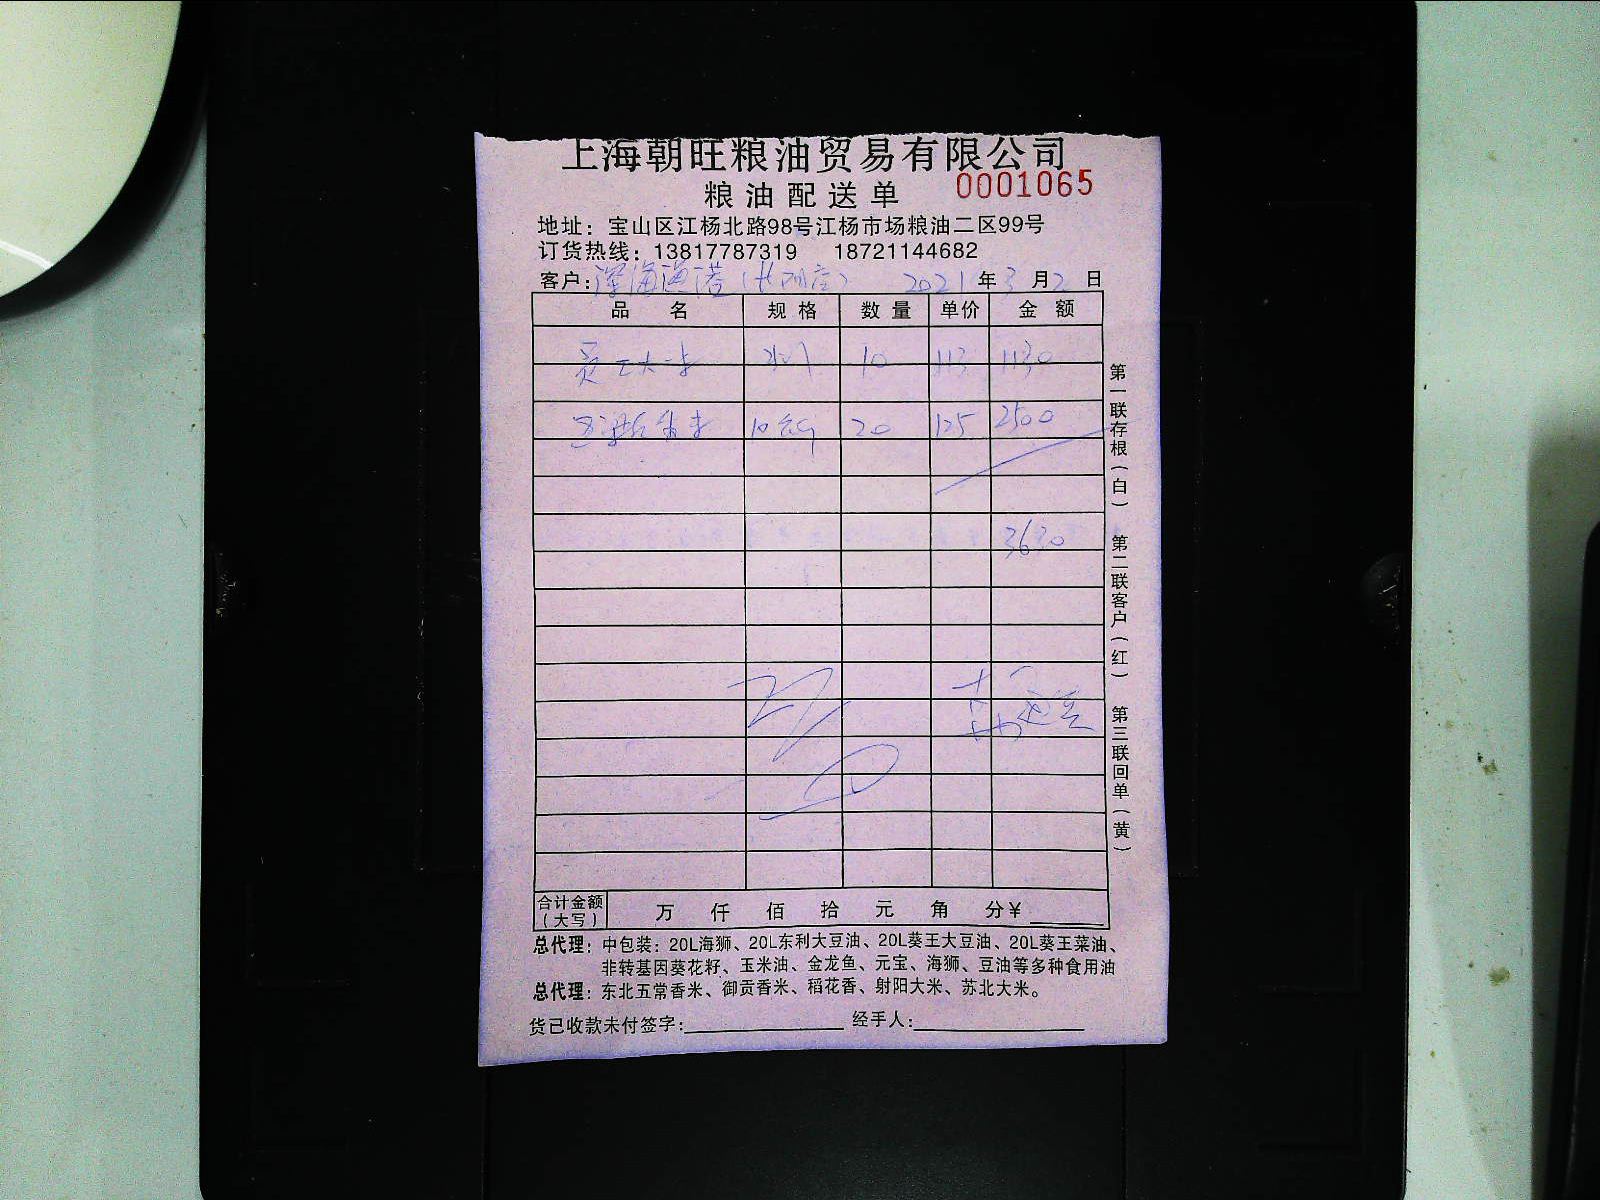 上海朝旺粮油贸易有限公司
粮油配送单 0001065
地址：宝山区江杨北路98号江杨市场粮油二区99号
订货热线：13817787319 18721144682
客户：深海渔港 2021年3月2日
品名 规格 数量 单价 金额
员工大米 10 113 1130
10kg 20 125 2500
3630
第一联存根（白） 第二联客户（红） 第三联回单（黄）
合计金额（大写） 万 仟 佰 拾 元 角 分¥
总代理：中包装：20L海狮、20L东利大豆油、20L葵王大豆油、20L葵王菜油、
非转基因葵花籽、玉米油、金龙鱼、元宝、海狮、豆油等多种食用油
总代理：东北五常香米、御贡香米、稻花香、射阳大米、苏北大米。
货已收款未付签字： 经手人：